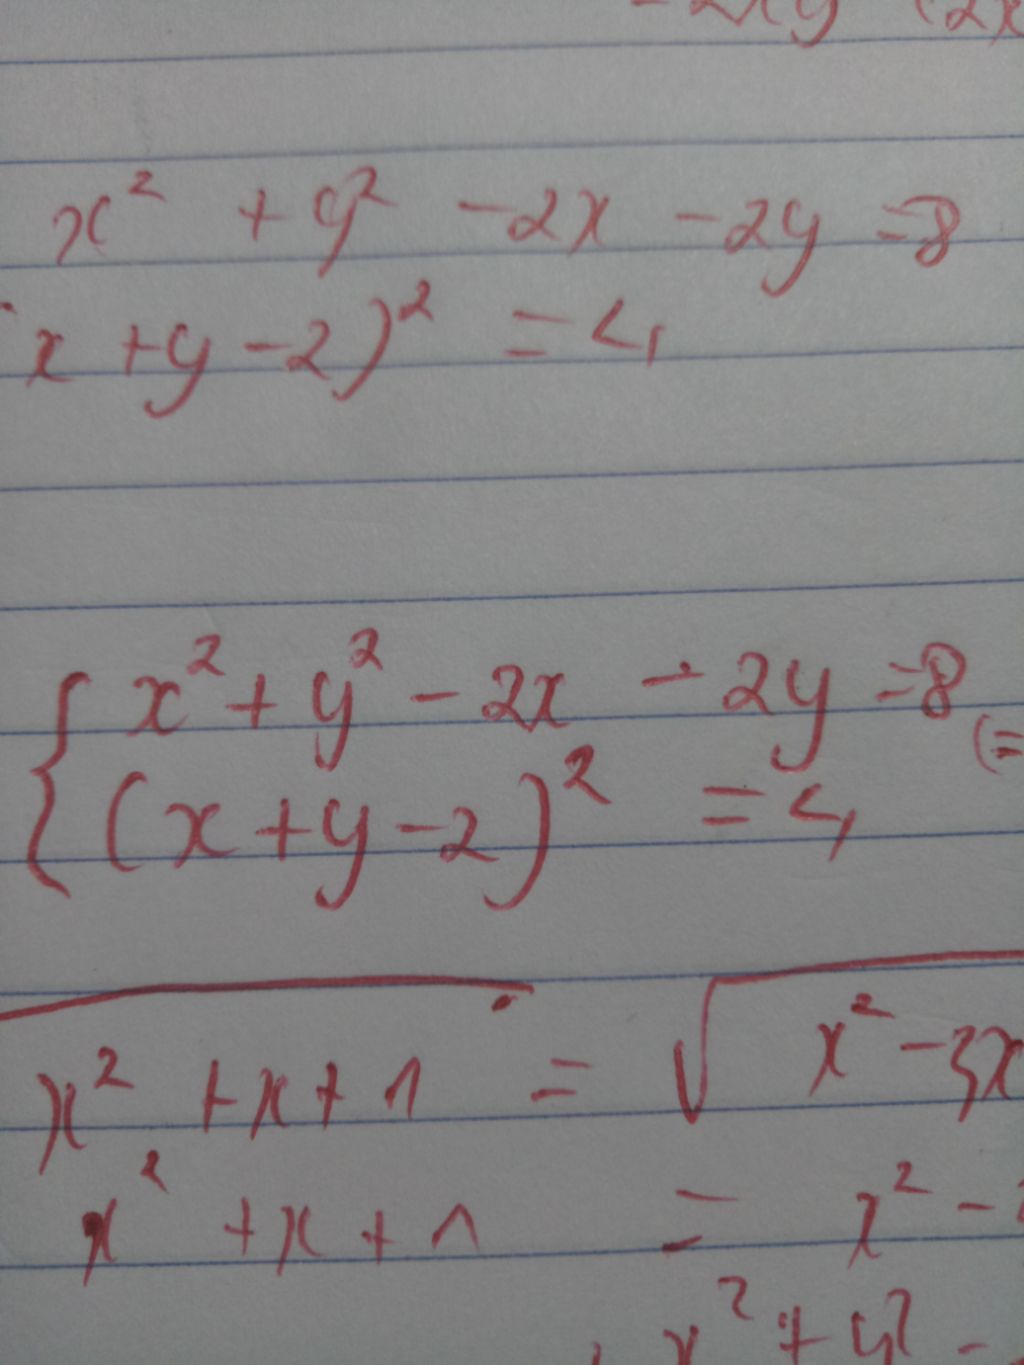 - 2xy (2x
x² + y² - 2x - 2y = 8
x + y - 2)² = 4
{ x² + y² - 2x - 2y = 8 (=
(x + y - 2)² = 4
x² + x + 1 = √x² - 3x
x² + x + 1 = x² -
x² + y² -